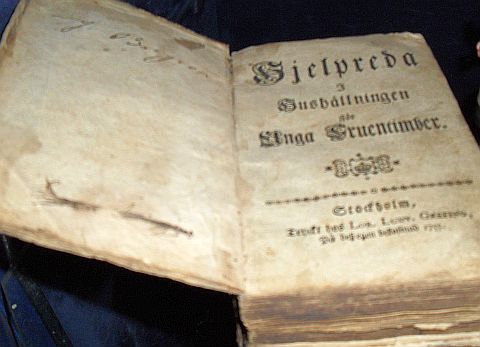 Hjelpreda
I
Hushållningen
för
Unga Fruentimber.
Stockholm,
Tryckt hos Lor. Ludv. Grefing,
På bokstad 1755.